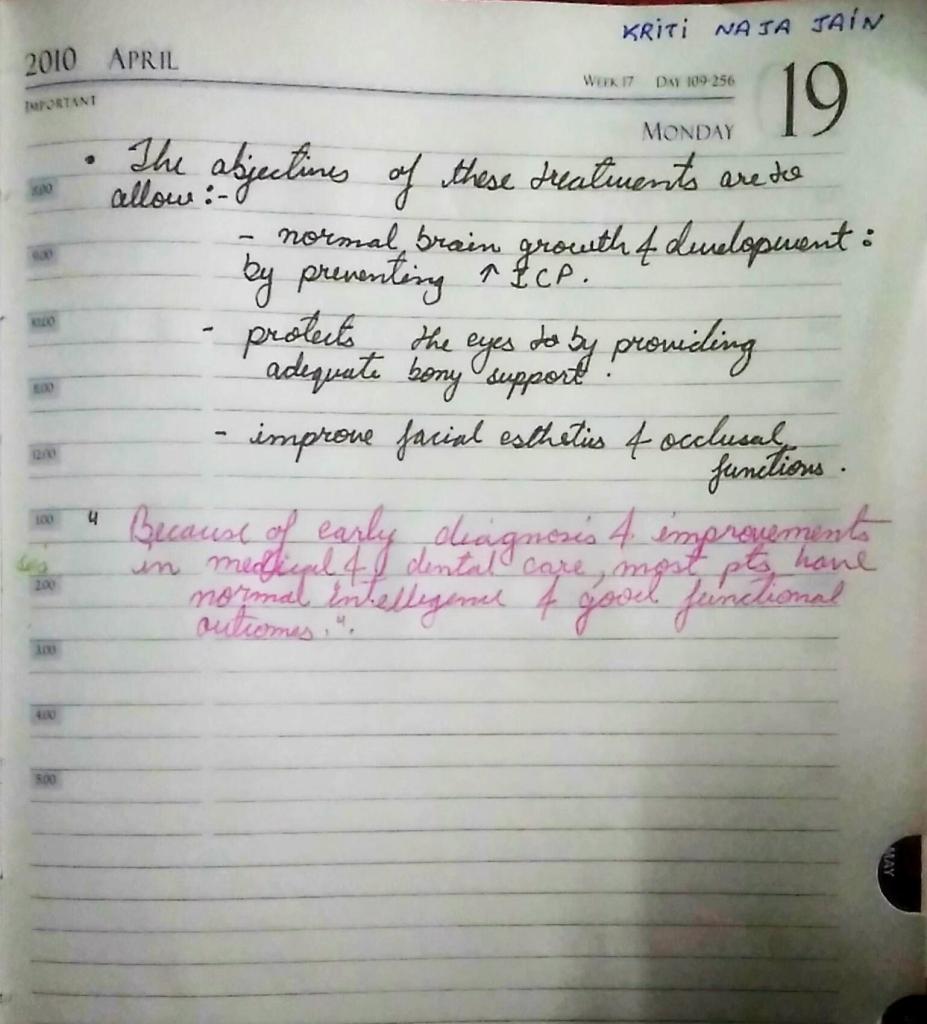 KRITI NAJA JAIN
2010 APRIL
WEEK 17 DAY 109-256
19
IMPORTANT
MONDAY
• The objectives of these treatments are to
allow :-
- normal brain growth & development :
by preventing ↑ ICP.
- protects the eyes to by providing
adequate bony support.
- improve facial esthetics & occlusal
functions.
" Because of early diagnosis & improvements
in medical & dental care, most pts have
normal intelligence & good functional
outcomes.".
8:00
9:00
10:00
12:00
1:00
2:00
3:00
4:00
5:00
MAY